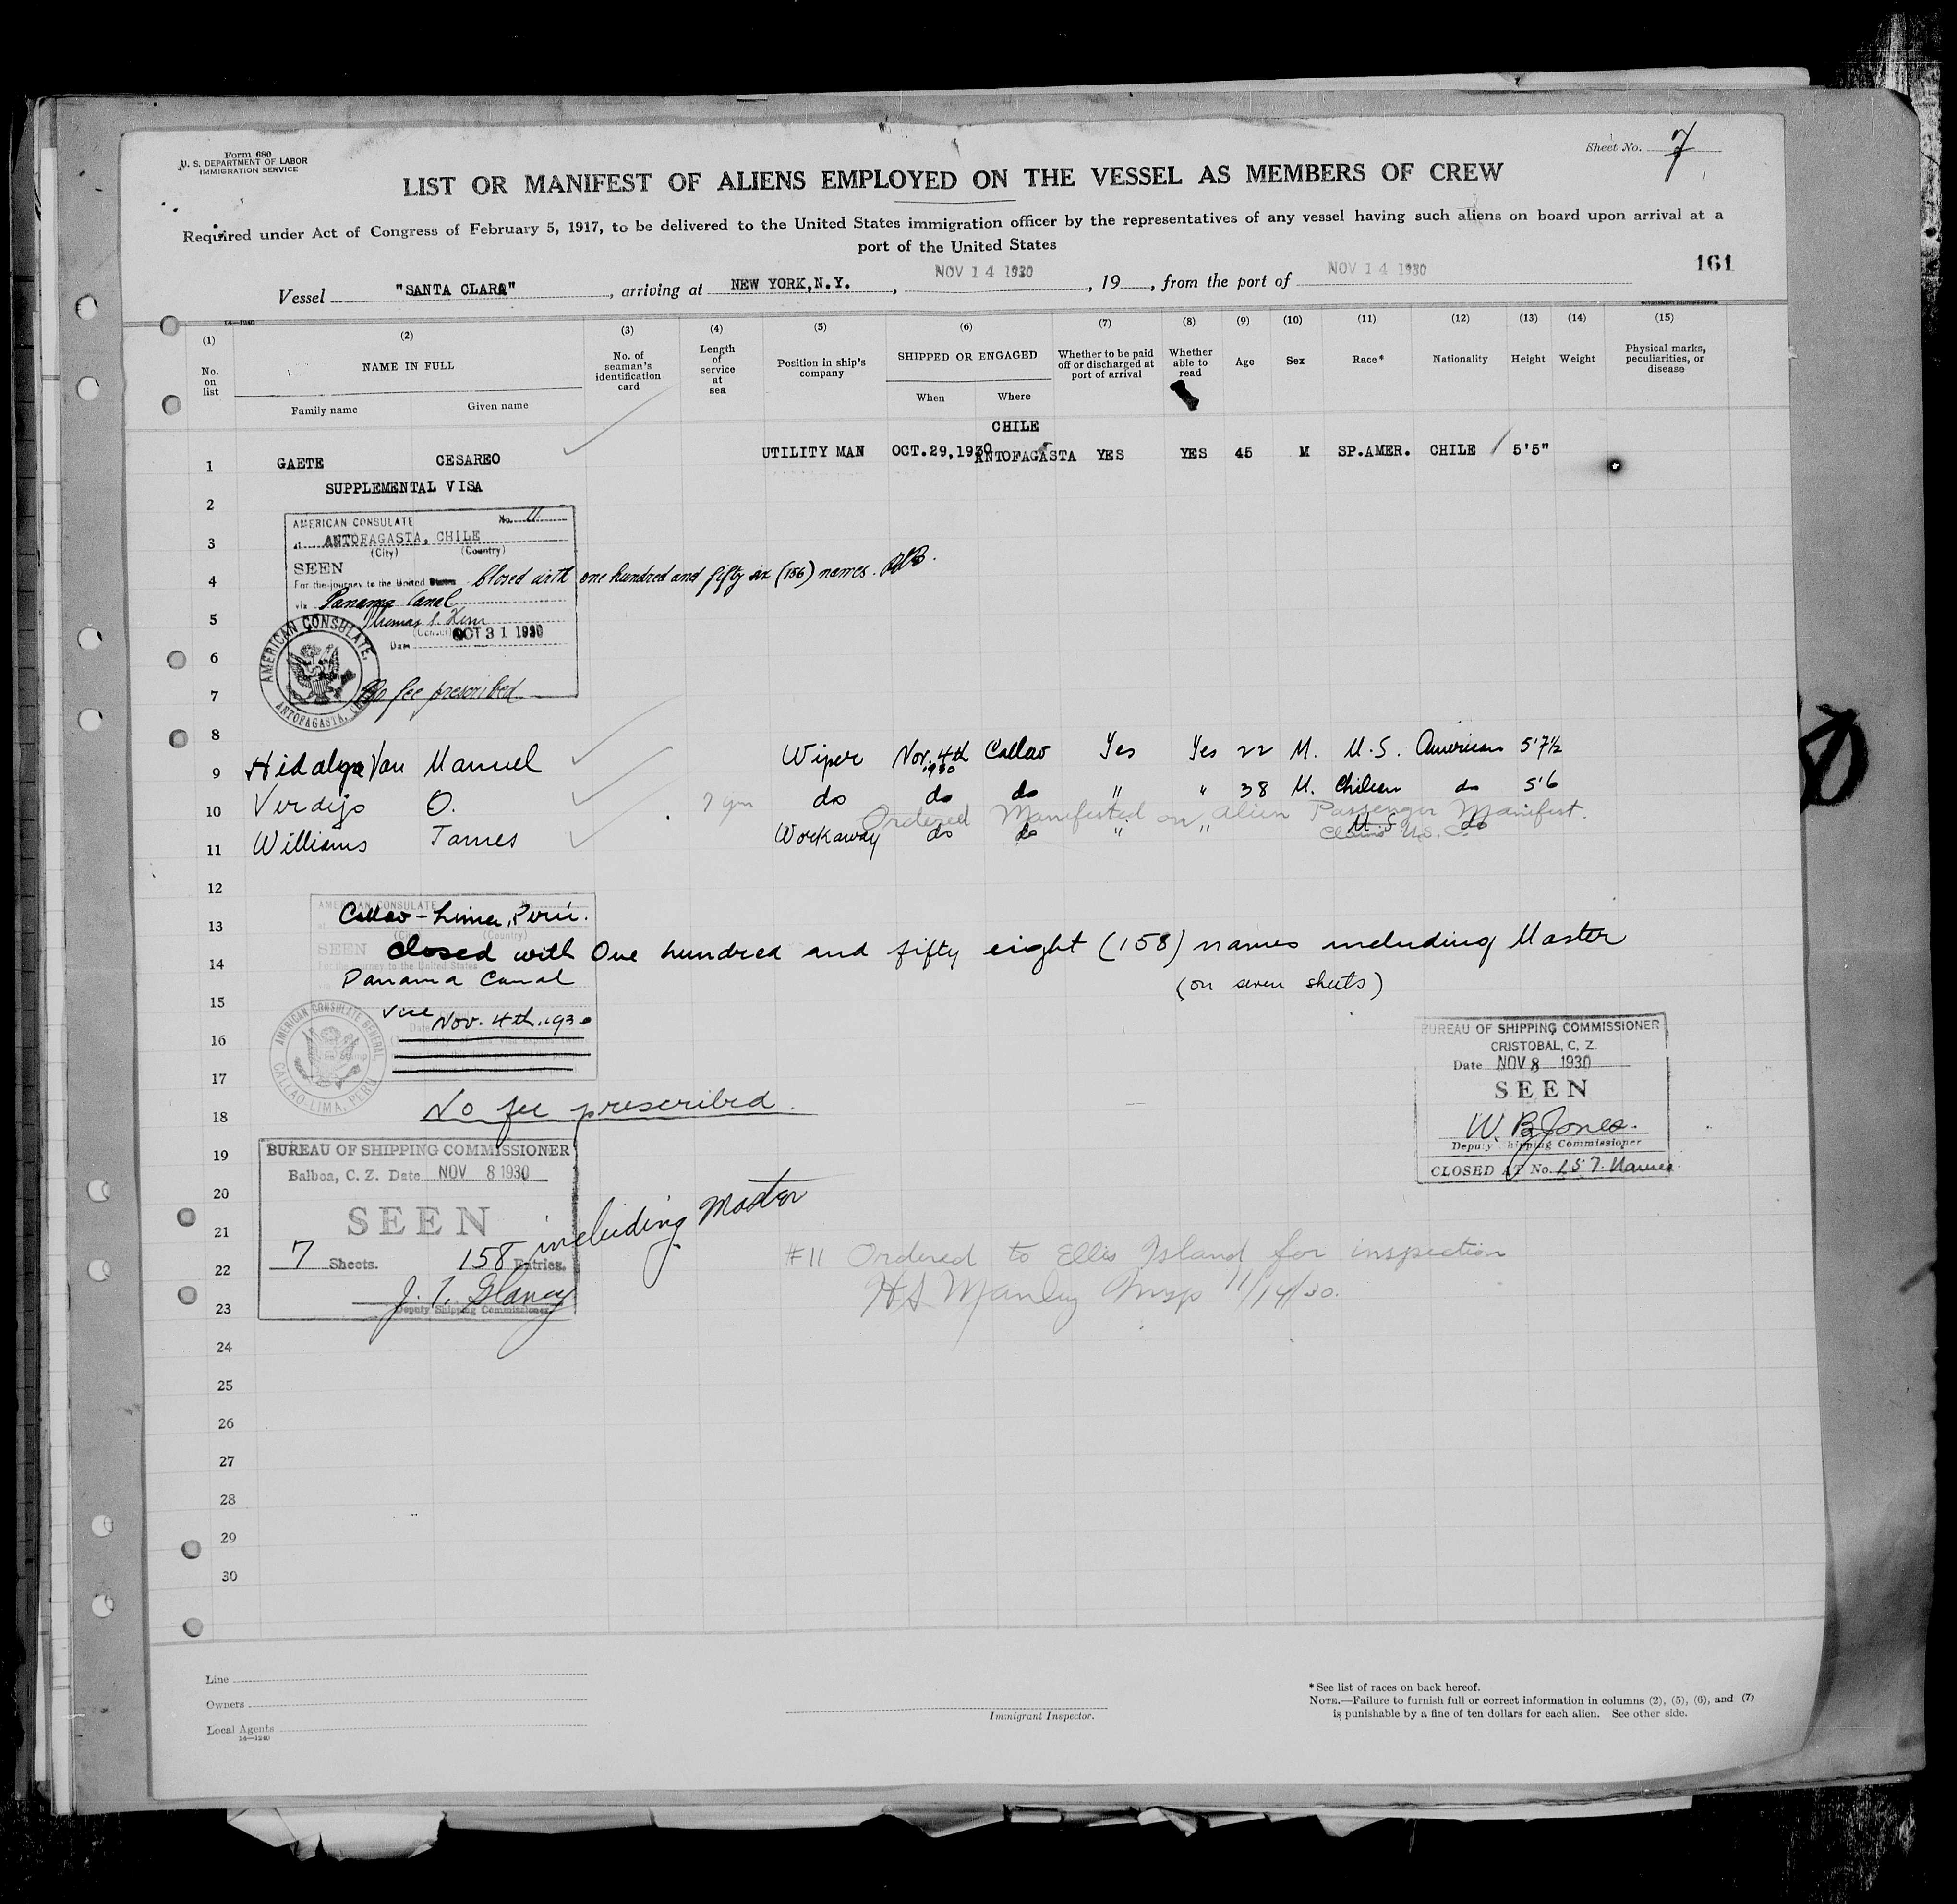 Form 680
U. S. DEPARTMENT OF LABOR
IMMIGRATION SERVICE
Sheet No. 7
LIST OR MANIFEST OF ALIENS EMPLOYED ON THE VESSEL AS MEMBERS OF CREW
Required under Act of Congress of February 5, 1917, to be delivered to the United States immigration officer by the representatives of any vessel having such aliens on board upon arrival at a
port of the United States
161
Vessel "SANTA CLARA", arriving at NEW YORK,N.Y., NOV 14 1930, 19, from the port of NOV 14 1930
14—1240
(1) (2) (3) (4) (5) (6) (7) (8) (9) (10) (11) (12) (13) (14) (15)
No. on list
NAME IN FULL
Family name Given name
No. of seaman's identification card
Length of service at sea
Position in ship's company
SHIPPED OR ENGAGED
When Where
Whether to be paid off or discharged at port of arrival
Whether able to read
Age Sex Race* Nationality Height Weight
Physical marks, peculiarities, or disease
CHILE
1 GAETE CESAREO UTILITY MAN OCT.29,1930 ANTOFAGASTA YES YES 45 M SP.AMER. CHILE 5'5"
SUPPLEMENTAL VISA
2
AMERICAN CONSULATE No. 11
3 at ANTOFAGASTA, CHILE
(City) (Country)
SEEN
4 For the journey to the United States Closed with one hundred and fifty six (156) names.
via Panama Canal
5 Thomas S. Horn
(Consul) OCT 31 1930
Date
6
AMERICAN CONSULATE, ANTOFAGASTA, CHILE
7 No fee prescribed
8
9 Hidalgo Van Manuel Wiper Nov. 4th 1930 Callao Yes Yes 22 M. U.S. American 5'7½
10 Verdejo O. 7 yrs do do do " " 38 M. Chilean do 5'6
Ordered Manifested on Alien Passenger Manifest.
11 Williams James Workaway do do " " U.S. do
Claims U.S.C.
12
AMERICAN CONSULATE No.
13 Callao-Lima, Perú.
(City) (Country)
SEEN
closed with One hundred and fifty eight (158) names including Master
14 For the journey to the United States
Panama Canal (on seven sheets)
15
Vice
Date Nov. 4th. 1930
16
AMERICAN CONSULATE GENERAL CALLAO-LIMA, PERU
17
18 No fee prescribed.
BUREAU OF SHIPPING COMMISSIONER
CRISTOBAL, C. Z.
Date NOV 8 1930
SEEN
W. B. Jones.
Deputy Shipping Commissioner
CLOSED AT No. 157. Names.
19 BUREAU OF SHIPPING COMMISSIONER
Balboa, C. Z. Date NOV 8 1930
20
21 SEEN
22 7 Sheets. 158 Entries. including Master
23 J. T. Glancy
Deputy Shipping Commissioner
#11 Ordered to Ellis Island for inspection
HS Manley Insp 11/14/30.
24
25
26
27
28
29
30
Line
Owners
Local Agents
14—1240
Immigrant Inspector.
*See list of races on back hereof.
NOTE.—Failure to furnish full or correct information in columns (2), (5), (6), and (7)
is punishable by a fine of ten dollars for each alien. See other side.